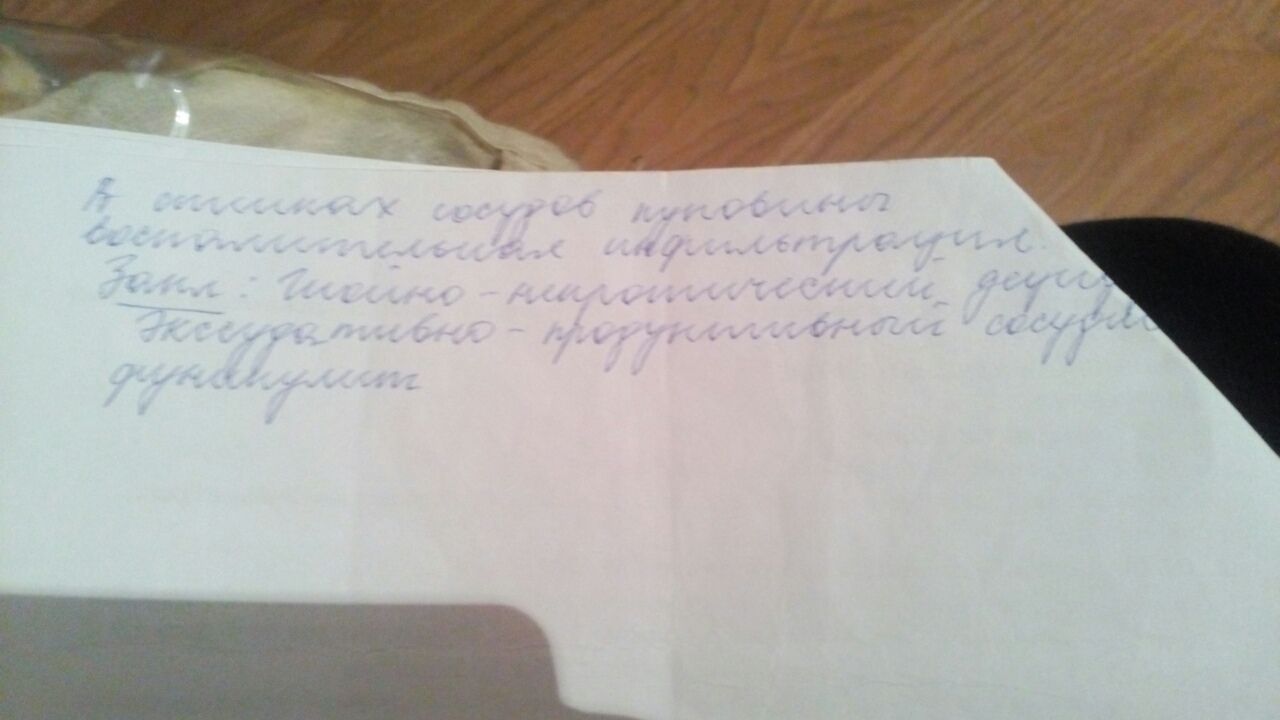 В стенках сосудов пуповины
воспалительная инфильтрация.
Закл: Гнойно-некротический
Экссудативно-продуктивный
фуникулит